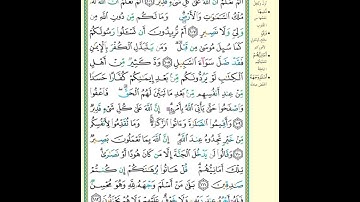 أَلَمْ تَعْلَمْ أَنَّ ٱللَّهَ عَلَىٰ كُلِّ شَىْءٍ قَدِيرٌ ١٠٦ أَلَمْ تَعْلَمْ أَنَّ ٱللَّهَ لَهُۥ
مُلْكُ ٱلسَّمَٰوَٰتِ وَٱلْأَرْضِ وَمَا لَكُم مِّن دُونِ ٱللَّهِ مِن
وَلِىٍّ وَلَا نَصِيرٍ ١٠٧ أَمْ تُرِيدُونَ أَن تَسْـَٔلُوا۟ رَسُولَكُمْ
كَمَا سُئِلَ مُوسَىٰ مِن قَبْلُ وَمَن يَتَبَدَّلِ ٱلْكُفْرَ بِٱلْإِيمَٰنِ
فَقَدْ ضَلَّ سَوَآءَ ٱلسَّبِيلِ ١٠٨ وَدَّ كَثِيرٌ مِّنْ أَهْلِ
ٱلْكِتَٰبِ لَوْ يَرُدُّونَكُم مِّنۢ بَعْدِ إِيمَٰنِكُمْ كُفَّارًا حَسَدًا
مِّنْ عِندِ أَنفُسِهِم مِّنۢ بَعْدِ مَا تَبَيَّنَ لَهُمُ ٱلْحَقُّ فَٱعْفُوا۟
وَٱصْفَحُوا۟ حَتَّىٰ يَأْتِىَ ٱللَّهُ بِأَمْرِهِۦٓ إِنَّ ٱللَّهَ عَلَىٰ كُلِّ شَىْءٍ قَدِيرٌ
١٠٩ وَأَقِيمُوا۟ ٱلصَّلَوٰةَ وَءَاتُوا۟ ٱلزَّكَوٰةَ وَمَا تُقَدِّمُوا۟ لِأَنفُسِكُم
مِّنْ خَيْرٍ تَجِدُوهُ عِندَ ٱللَّهِ إِنَّ ٱللَّهَ بِمَا تَعْمَلُونَ بَصِيرٌ
١١٠ وَقَالُوا۟ لَن يَدْخُلَ ٱلْجَنَّةَ إِلَّا مَن كَانَ هُودًا أَوْ نَصَٰرَىٰ
تِلْكَ أَمَانِيُّهُمْ قُلْ هَاتُوا۟ بُرْهَٰنَكُمْ إِن كُنتُمْ
صَٰدِقِينَ ١١١ بَلَىٰ مَنْ أَسْلَمَ وَجْهَهُۥ لِلَّهِ وَهُوَ مُحْسِنٌ
فَلَهُۥٓ أَجْرُهُۥ عِندَ رَبِّهِۦ وَلَا خَوْفٌ عَلَيْهِمْ وَلَا هُمْ يَحْزَنُونَ ١١٢